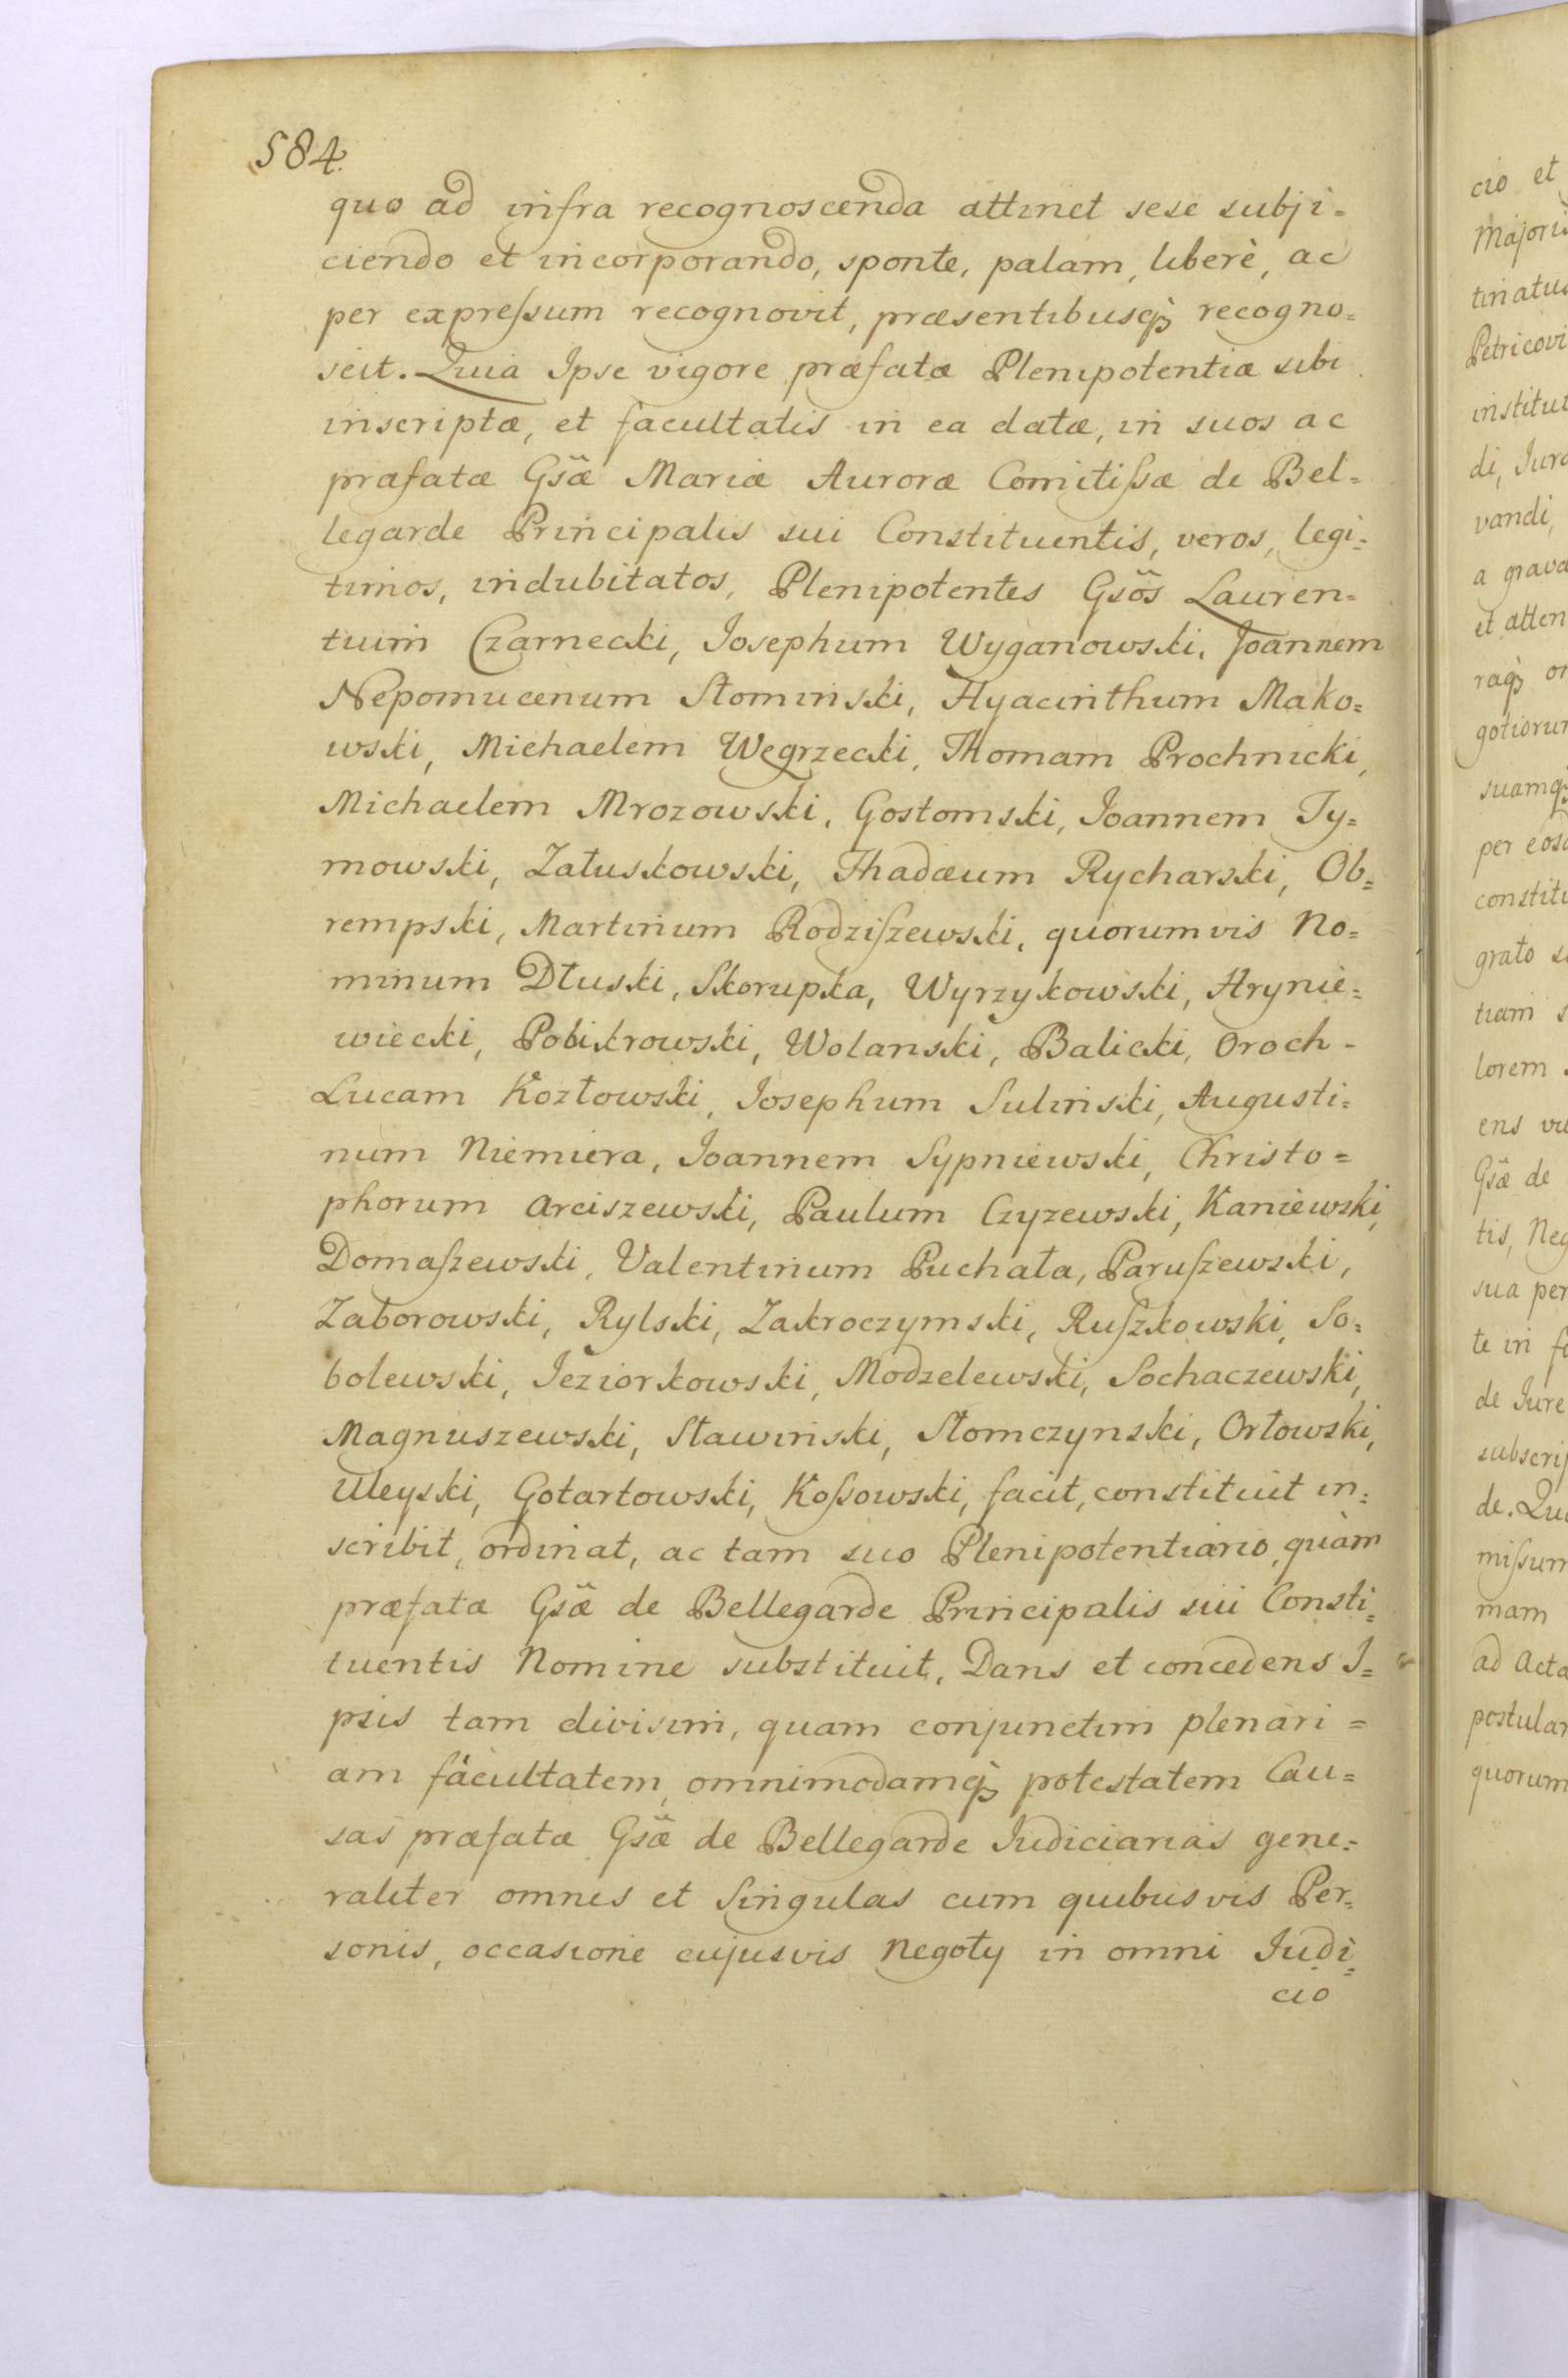 584.
quo ad infra recognoscenda attinet sese subji=
ciendo et incorporando, sponte, palam, liberè, ac
per expreſsum recognovit, præsentibusq̃ recogno=
scit. Quia Ipse vigore præfatæ Plenipotentiæ sibi
inscriptæ, et facultatis in ea datæ, in suos ac
præfatæ Gsæ Mariæ Auroræ Comitiſsæ de Bel=
legarde Principalis sui Constituentis, veros, legi=
timos, indubitatos, Plenipotentes Gsõs Lauren=
tium Czarnecki, Iosephum Wyganowski, Joannem
Nepomucenum Słominski, Hyacinthum Mako=
wski, Michaelem Węgrzecki, Thomam Prochnicki,
Michaelem Mrozowski, Gostomski, Ioannem Ty=
mowski, Załuskowski, Thadæum Rycharski, Ob=
rempski, Martinum Rodziſzewski, quorumvis No=
minum Dłuski, Skorupka, Wyrzykowski, Hrynie=
wiecki, Pobikrowski, Wolanski, Balicki, Oroch-
Lucam Kozłowski, Iosephum Suliński, Augusti=
num Niemiera, Joannem Sypniewski, Christo=
phorum Arciszewski, Paulum Czyzewski, Kaniewski,
Domaſzewski, Valentinum Puchała, Paruſzewski,
Zaborowski, Rylski, Zakroczymski, Ruſzkowski, So=
bolewski, Jeziorkowski, Modzelewski, Sochaczewski,
Magnuszewski, Sławiński, Słomczynski, Orłowski,
Uleyski, Gotartowski, Koſsowski, facit, constituit in=
scribit, ordinat, ac tam suo Plenipotentiario, quàm
præfatæ Gsæ de Bellegarde Principalis sui Consti=
tuentis Nomine substituit. Dans et concedens I=
psis tam divisim, quam conjunctim plenari=
am facultatem, omnimodamq̃ potestatem Cau=
sas præfatæ Gsæ de Bellegarde Iudiciarias gene=
raliter omnes et Singulas cum quibusvis Per=
sonis, occasione cujusvis Negoty in omni Iudi=
cio
cio et
Majoris
tinatus
Petricovi
institui
di, Jura
vandi,
a grava
et atten
raq̃ om
gotiorum
suamq̃
per eosd
constitu
grato
tiam s
lorem
ens
Gsæ de
tis, Neg
sua per
te in fo
de Jure
subscrip
de. Qui
miſsum
mam
ad Acta
postular
quorum